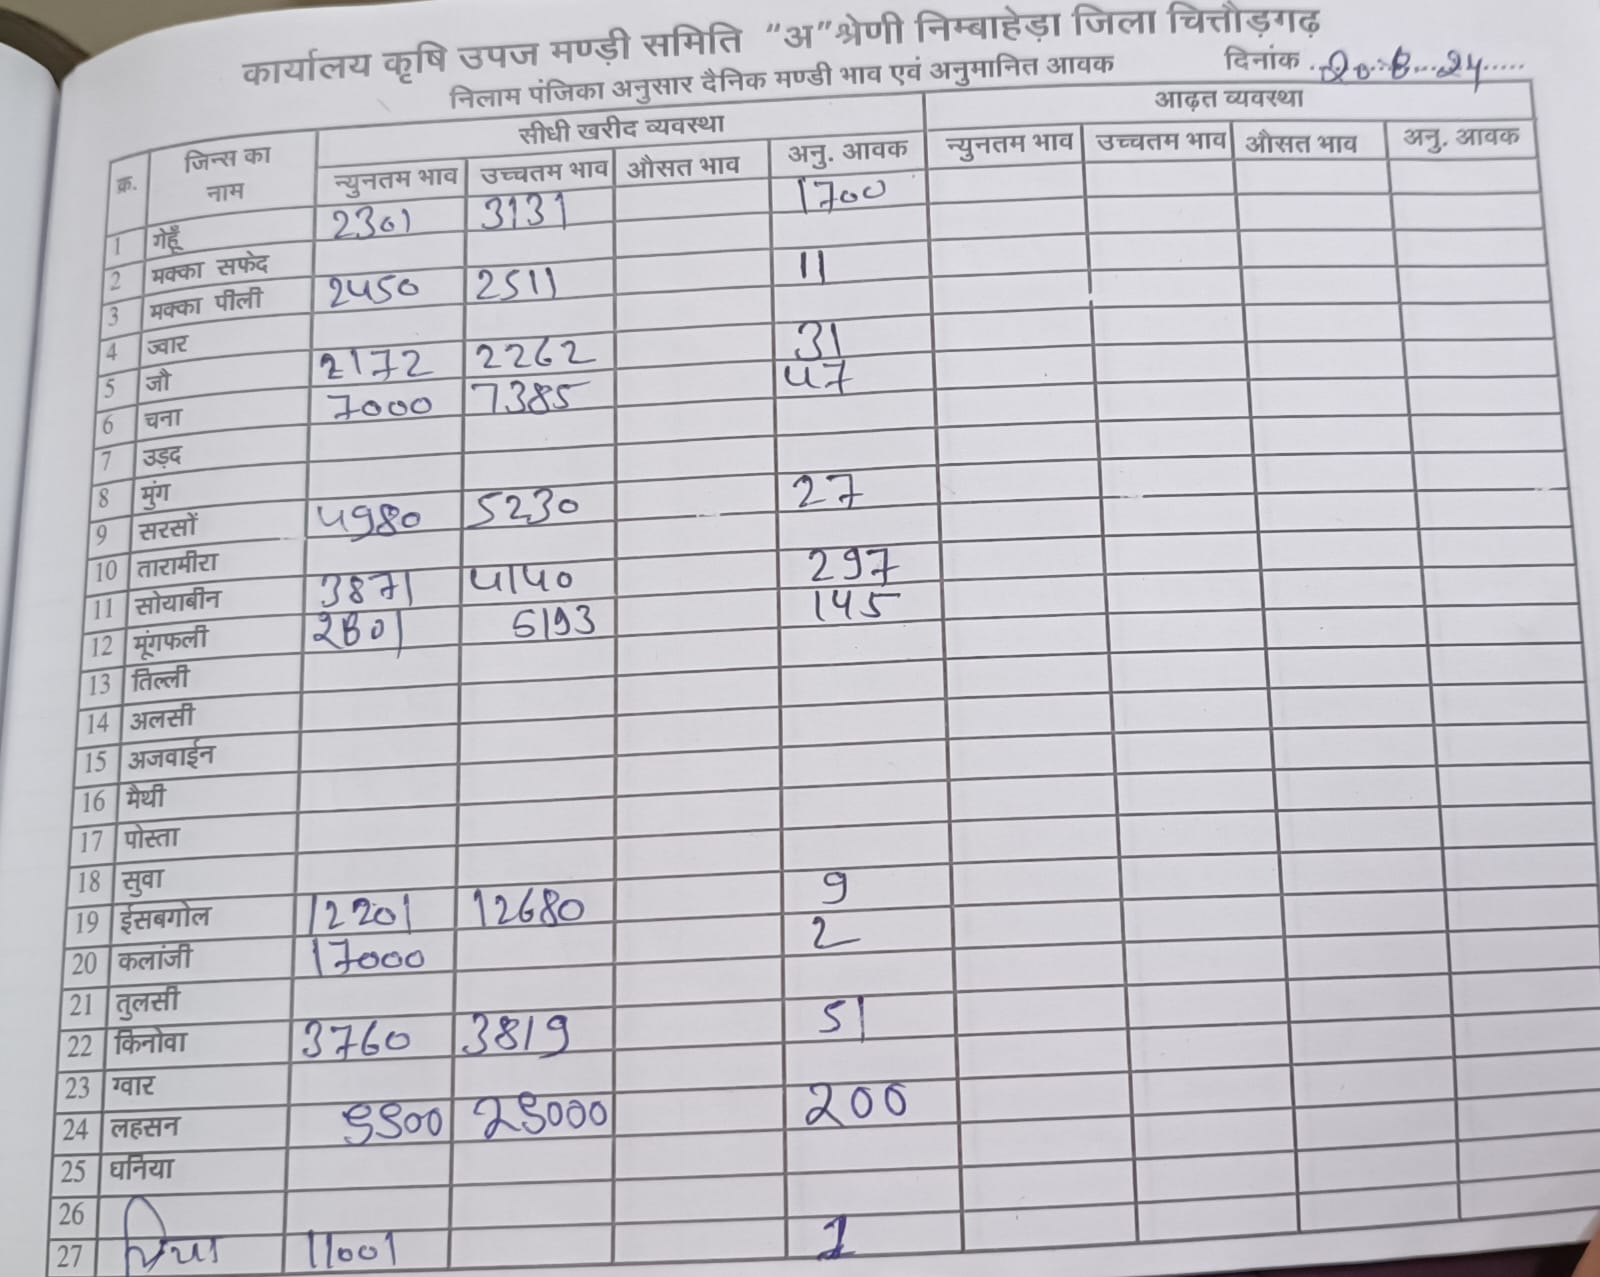 कार्यालय कृषि उपज मण्ड़ी समिति "अ" श्रेणी निम्बाहेड़ा जिला चित्तौड़गढ़
निलाम पंजिका अनुसार दैनिक मण्डी भाव एवं अनुमानित आवक दिनांक 20.8.24
क्र. जिन्स का नाम सीधी खरीद व्यवस्था आढ़त व्यवस्था
न्युनतम भाव उच्चतम भाव औसत भाव अनु. आवक न्युनतम भाव उच्चतम भाव औसत भाव अनु. आवक
1 गेहूँ 2301 3131 1700
2 मक्का सफेद
3 मक्का पीली 2450 2511 11
4 ज्वार
5 जौ 2172 2262 31
6 चना 7000 7385 47
7 उड़द
8 मुंग
9 सरसों 4980 5230 27
10 तारामीरा
11 सोयाबीन 3871 4140 297
12 मूंगफली 2801 5193 145
13 तिल्ली
14 अलसी
15 अजवाईन
16 मैथी
17 पोस्ता
18 सुवा
19 ईसबगोल 12201 12680 9
20 कलांजी 17000 2
21 तुलसी
22 किनोवा 3760 3819 51
23 ग्वार
24 लहसन 25000 200
25 धनिया
26
27 चिया 11001 1